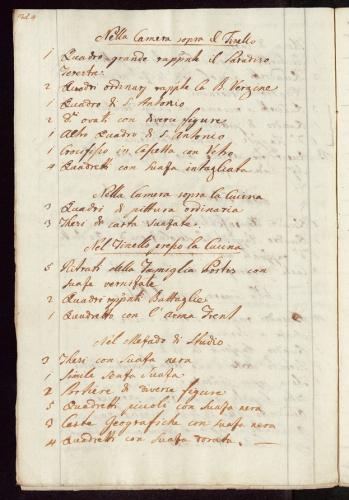 Nella Camera sopra il Tinello
1 Quadro grande rappnte il Paradiso
Terestre
2 Quadri ordinarj rappte la B. Vergine
1 Quadro di S. Antonio
2 Dti ovati con diverse figure
1 Altro Quadro di S. Antonio
1 Crocifisso in Capsetta con Vetro
4 Quadretti con Suasa intagliata
Nella Camera sopra la Cucina
3 Quadri di pittura ordinaria
3 Thesi di carta suasate.
Nel Tinello apreso la Cucina
5 Ritrati della Famiglia Portis con
suase vernisate
2 Quadri rappnti Battaglie
1 Quadretto con l'Arma Trent
Nel Mezado di Studio
3 Thesi con suasa nera
1 Simile senza suasa
2 Portiere di diverse figure
5 Quadretti picoli con suasa nera
3 Carte Geografiche con suasa nera
4 Quadretti con suasa dorata.